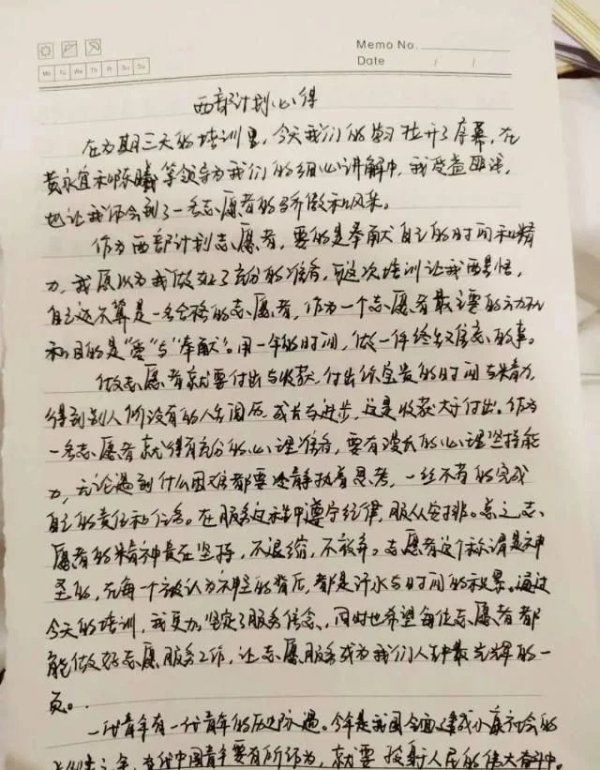 Memo No.
Date / /
Mo Tu We Th Fr Sa Su
西部计划心得
在为期三天的培训里,今天我们的学习拉开了序幕,在
黄永宜和陈曦等领导为我们的细心讲解中,我受益匪浅,
也让我体会到了一名志愿者的骄傲和风采。
作为西部计划志愿者,要的是奉献自己的时间和精
力,我原以为我做好了充分的准备,可这次培训让我西是悟,
自己还不算是一名合格的志愿者,作为一个志愿者最主要的动机
和目的是“爱”与“奉献”。用一年的时间,做一件终身难忘的事。
做志愿者就要付出与收获,付出你宝贵的时间与精力,
得到别人所没有的人生阅历,成长与进步,这是收获大于付出。作为
一名志愿者就得有充分的心理准备,要有漫长的心理坚持能
力,无论遇到什么困难都要冷静执着思考,一丝不苟的完成
自己的责任和任务。在服务过程中遵守纪律,服从安排。总之志
愿者的精神贵在坚持,不退缩,不放弃。志愿者这个称谓是神
圣的,在每一个被认为神圣的背后,都是汗水与时间的积累。通过
今天的培训,我更加坚定了服务信念,同时也希望每位志愿者都
能做好志愿服务工作,让志愿服务成为我们人生中最光辉的一
页。
一代青年有一代青年的历史际遇。今年是我国全面建成小康社会的
之年,当代中国青年要有所作为,就要投身人民的伟大奋斗中。